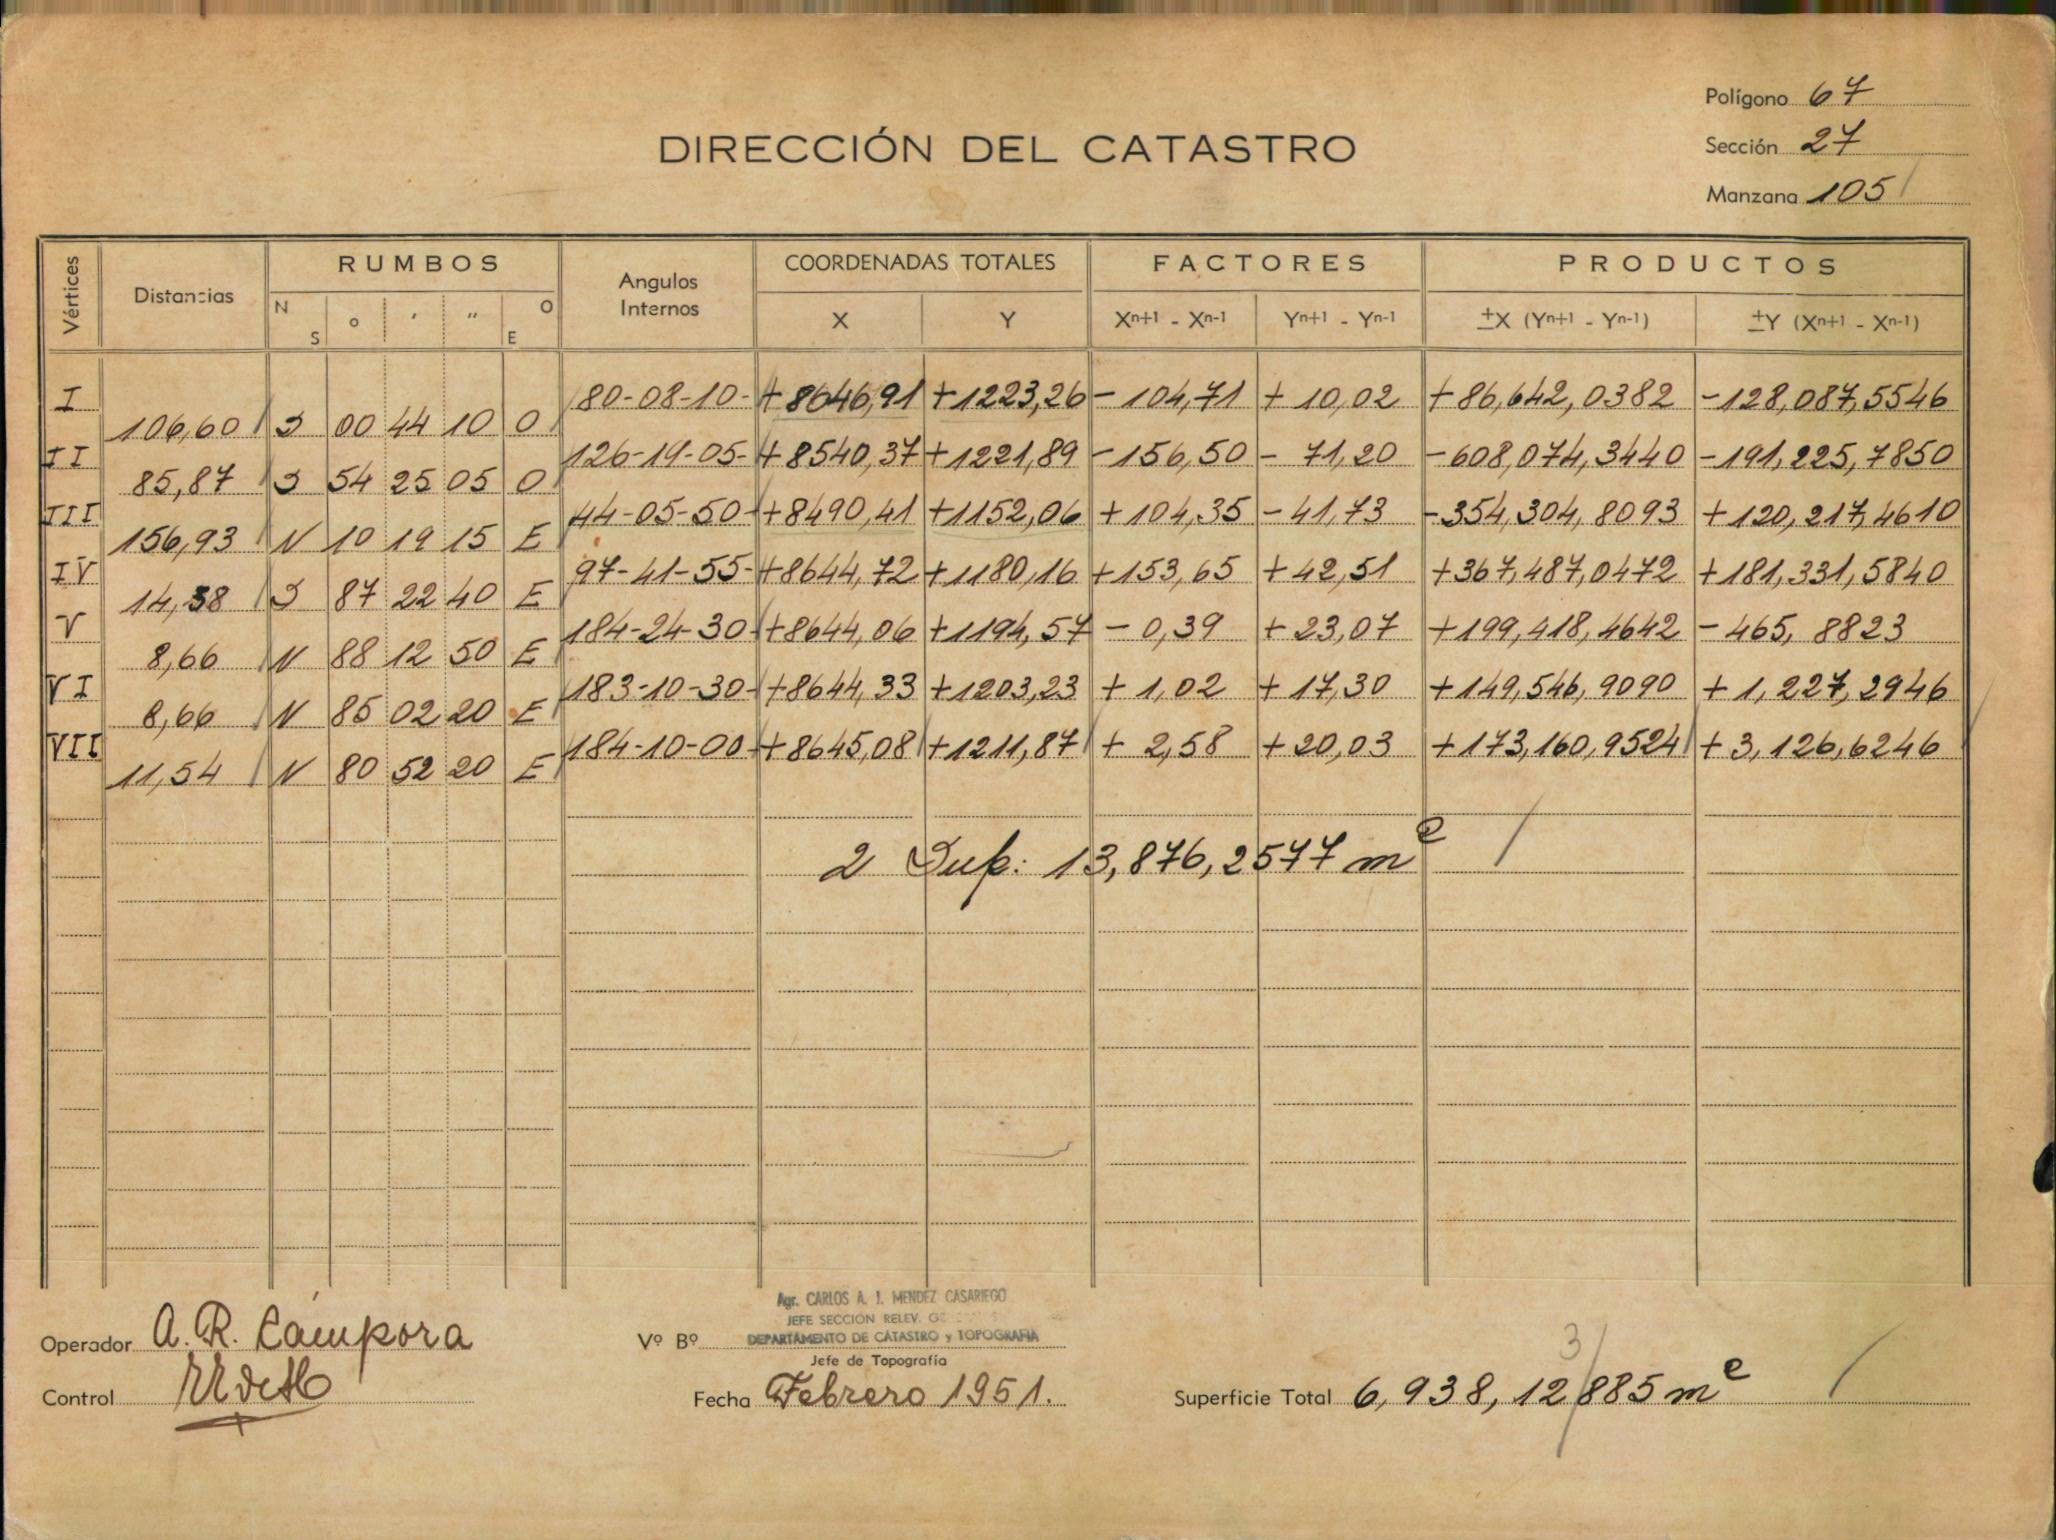 Polígono 67
DIRECCIÓN DEL CATASTRO
Sección 27
Manzana 105
Vértices Distancias RUMBOS Angulos Internos COORDENADAS TOTALES FACTORES PRODUCTOS
N S o ' " O E X Y Xn+1 - Xn-1 Yn+1 - Yn-1 ±X (Yn+1 - Yn-1) ±Y (Xn+1 - Xn-1)
I 80-08-10- +8646,91 +1223,26 -104,71 +10,02 +86,642,0382 -128,087,5546
106,60 S 00 44 10 O
II 126-19-05- +8540,37 +1221,89 -156,50 -71,20 -608,074,3440 -191,225,7850
85,87 S 54 25 05 O
III 44-05-50- +8490,41 +1152,06 +104,35 -41,73 -354,304,8093 +120,217,4610
156,93 N 10 19 15 E
IV 97-41-55- +8644,72 +1180,16 +153,65 +42,51 +367,487,0472 +181,331,5840
14,38 S 87 22 40 E
V 184-24-30- +8644,06 +1194,57 -0,39 +23,07 +199,418,4642 -465,8823
8,66 N 88 12 50 E
VI 183-10-30- +8644,33 +1203,23 +1,02 +17,30 +149,546,9090 +1,227,2946
8,66 N 85 02 20 E
VII 184-10-00- +8645,08 +1211,87 +2,58 +20,03 +173,160,9524 +3,126,6246
11,54 N 80 52 20 E
2 Sup: 13,876,2577 m2
Agr. CARLOS A. I. MENDEZ CASARIEGO
JEFE SECCION RELEV.
DEPARTAMENTO DE CATASTRO y TOPOGRAFIA
Operador A. R. Cámpora Vº Bº
Jefe de Topografía
3
Control Fecha Febrero 1951. Superficie Total 6,938,12885 m2